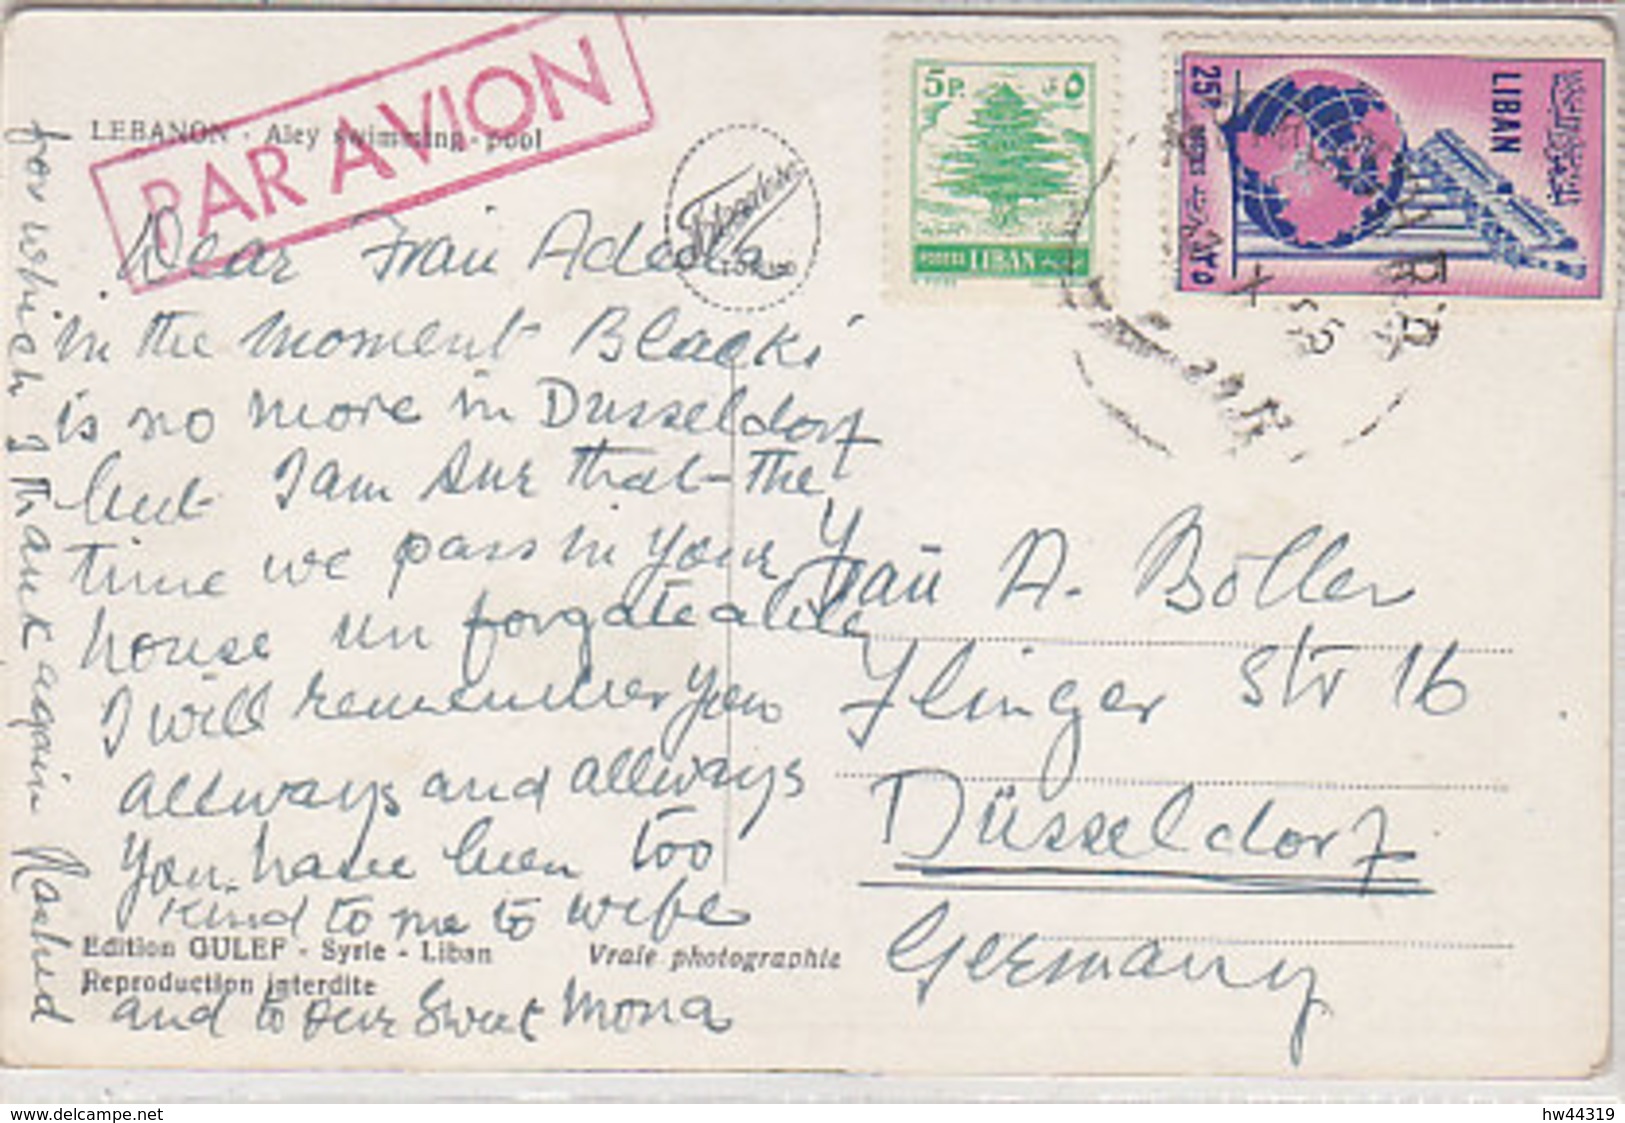 PAR AVION
LEBANON - Aley swimming-pool
Dear Frau Adella
in the moment Blacki
is no more in Dusseldorf
but I am sur that the
time we pass in your
house un forgateable
I will remember you
allways and allways
you have been too
kind to me to wife
and to our Sweet Mona
for which I thank again Rashed
Edition GULEF - Syrie - Liban
Reproduction interdite
Vraie photographie
5 P.
٥
POSTES LIBAN
25 P
LIBAN
POSTES
٢٥
Frau A. Böller
Flinger Str 16
Düsseldorf
Germany
www.delcampe.net
hw44319